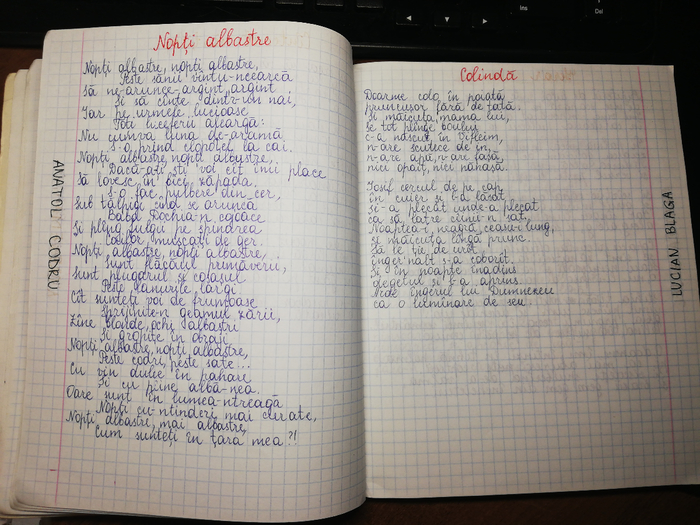 Nopți albastre
Nopți albastre, nopți albastre,
Peste sănii vîntu-ncearcă
Să ne-arunce-argint, argint
Și să cînte dintr-un nai,
Iar pe urmele lucioase
Toți luceferii aleargă:
Nu cumva luna de-aramă
S-o prind clopoțel la cai.
Nopți albastre, nopți albastre,
Dacă-ați ști voi cît îmi place
Să lovesc în bici zăpada,
S-o fac pulbere din cer,
Sub tălpici cînd se aruncă
Baba Dochia-n cojoace
Și plîng fulgii pe spinarea
Cailor mușcați de ger.
Nopți albastre, nopți albastre,
Sunt flăcăul primăverii,
Sunt plugarul și colașul
Peste lanurile largi
Cît sunteți voi de frumoase
Sprijinite-n geamul zării,
Zîne blonde, ochi albaștri
Și gropițe în obraji
Nopți albastre, nopți albastre,
Peste codri, peste sate...
Cu vin dulce în pahare
Și cu pîine albă-nea.
Oare sunt în lumea-ntreagă
Nopți cu-ntinderi mai curate,
Nopți albastre, mai albastre,
Cum sunteți în țara mea?!
ANATOL CODRU
Colindă
Doarme colo în poiată
pruncușor fără de tată.
Și măicuța, mama lui,
se tot plînge boului
c-a născut în Vifleim,
n-are scutece de in,
n-are apă, n-are fașă,
nici opaiț, nici nănașă.
Iosif cercul de pe cap
în cuier și l-a lăsat,
și-a plecat unde-a plecat
ca să latre cîinii-n sat.
Noaptea-i neagră, ceasu-i lung,
și măicuța lîngă prunc.
Să le ție de urît
înger nalt s-a coborît.
Și în noapte înadins
degetul și l-a aprins.
Arde îngerul lui Dumnezeu
ca o lumînare de seu.
LUCIAN BLAGA
Ins
Del